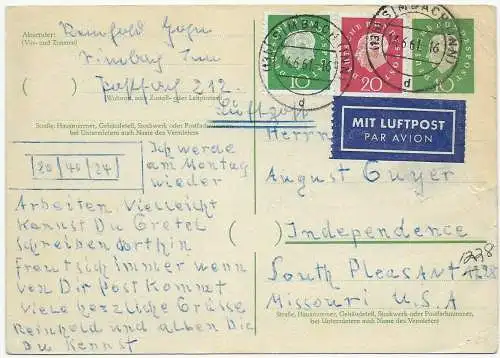 Absender:
(Vor- und Zuname)
Reinhold
Postfach 212
(Wohnort, auch Zustell- oder Leitpostamt)
Straße, Hausnummer, Gebäudeteil, Stockwerk oder Postfachnummer,
bei Untermietern auch Name des Vermieters
20/40/24
Ich werde
am Montag
wieder
Arbeiten. Vielleicht
Kannst Du Gretel
schreiben dorthin
freut sich immer wenn
von Dir Post kommt
viele herzliche Grüsse
Reinhold und allen Die
Du Kennst
DEUTSCHE BUNDESPOST
10
20
10
14.6.61.-16
d
14.6.61.-16
d
Luftpost
MIT LUFTPOST
PAR AVION
Herrn
August Guyer
Independence
South Pleasant 1228
Missouri U.S.A
Straße, Hausnummer, Gebäudeteil, Stockwerk oder Postfachnummer,
bei Untermietern auch Name des Vermieters